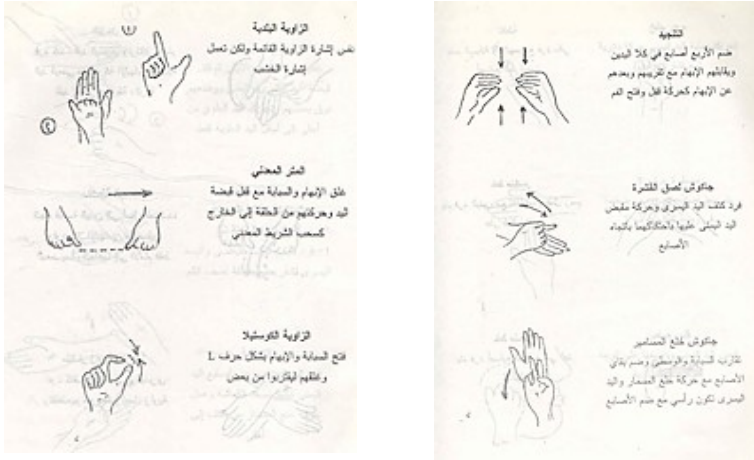 الزاوية البلدية
نفس إشارة الزاوية القائمة ولكن تعمل
إشارة الخشب
١
٢
المتر المعدني
غلق الإبهام والسبابة مع قفل قبضة
اليد وحركتهم من الحلقة إلى الخارج
كسحب الشريط المعدني
الزاوية الكوستيلا
فتح السبابة والإبهام بشكل حرف L
وغلقهم ليقتربوا من بعض
التنجيد
ضم الأربع أصابع في كلا اليدين
ويقابلهم الإبهام مع تقريبهم وبعدهم
عن الإبهام كحركة قفل وفتح الفم
جاكوش لصق القشرة
فرد كتف اليد اليسرى وحركة مقبض
اليد اليمنى عليها باحتكاكهما باتجاه
الأصابع
جاكوش خلع المسامير
تقارب السبابة والوسطى وضم باقي
الأصابع مع حركة خلع المسمار واليد
اليسرى تكون رأسي مع ضم الأصابع